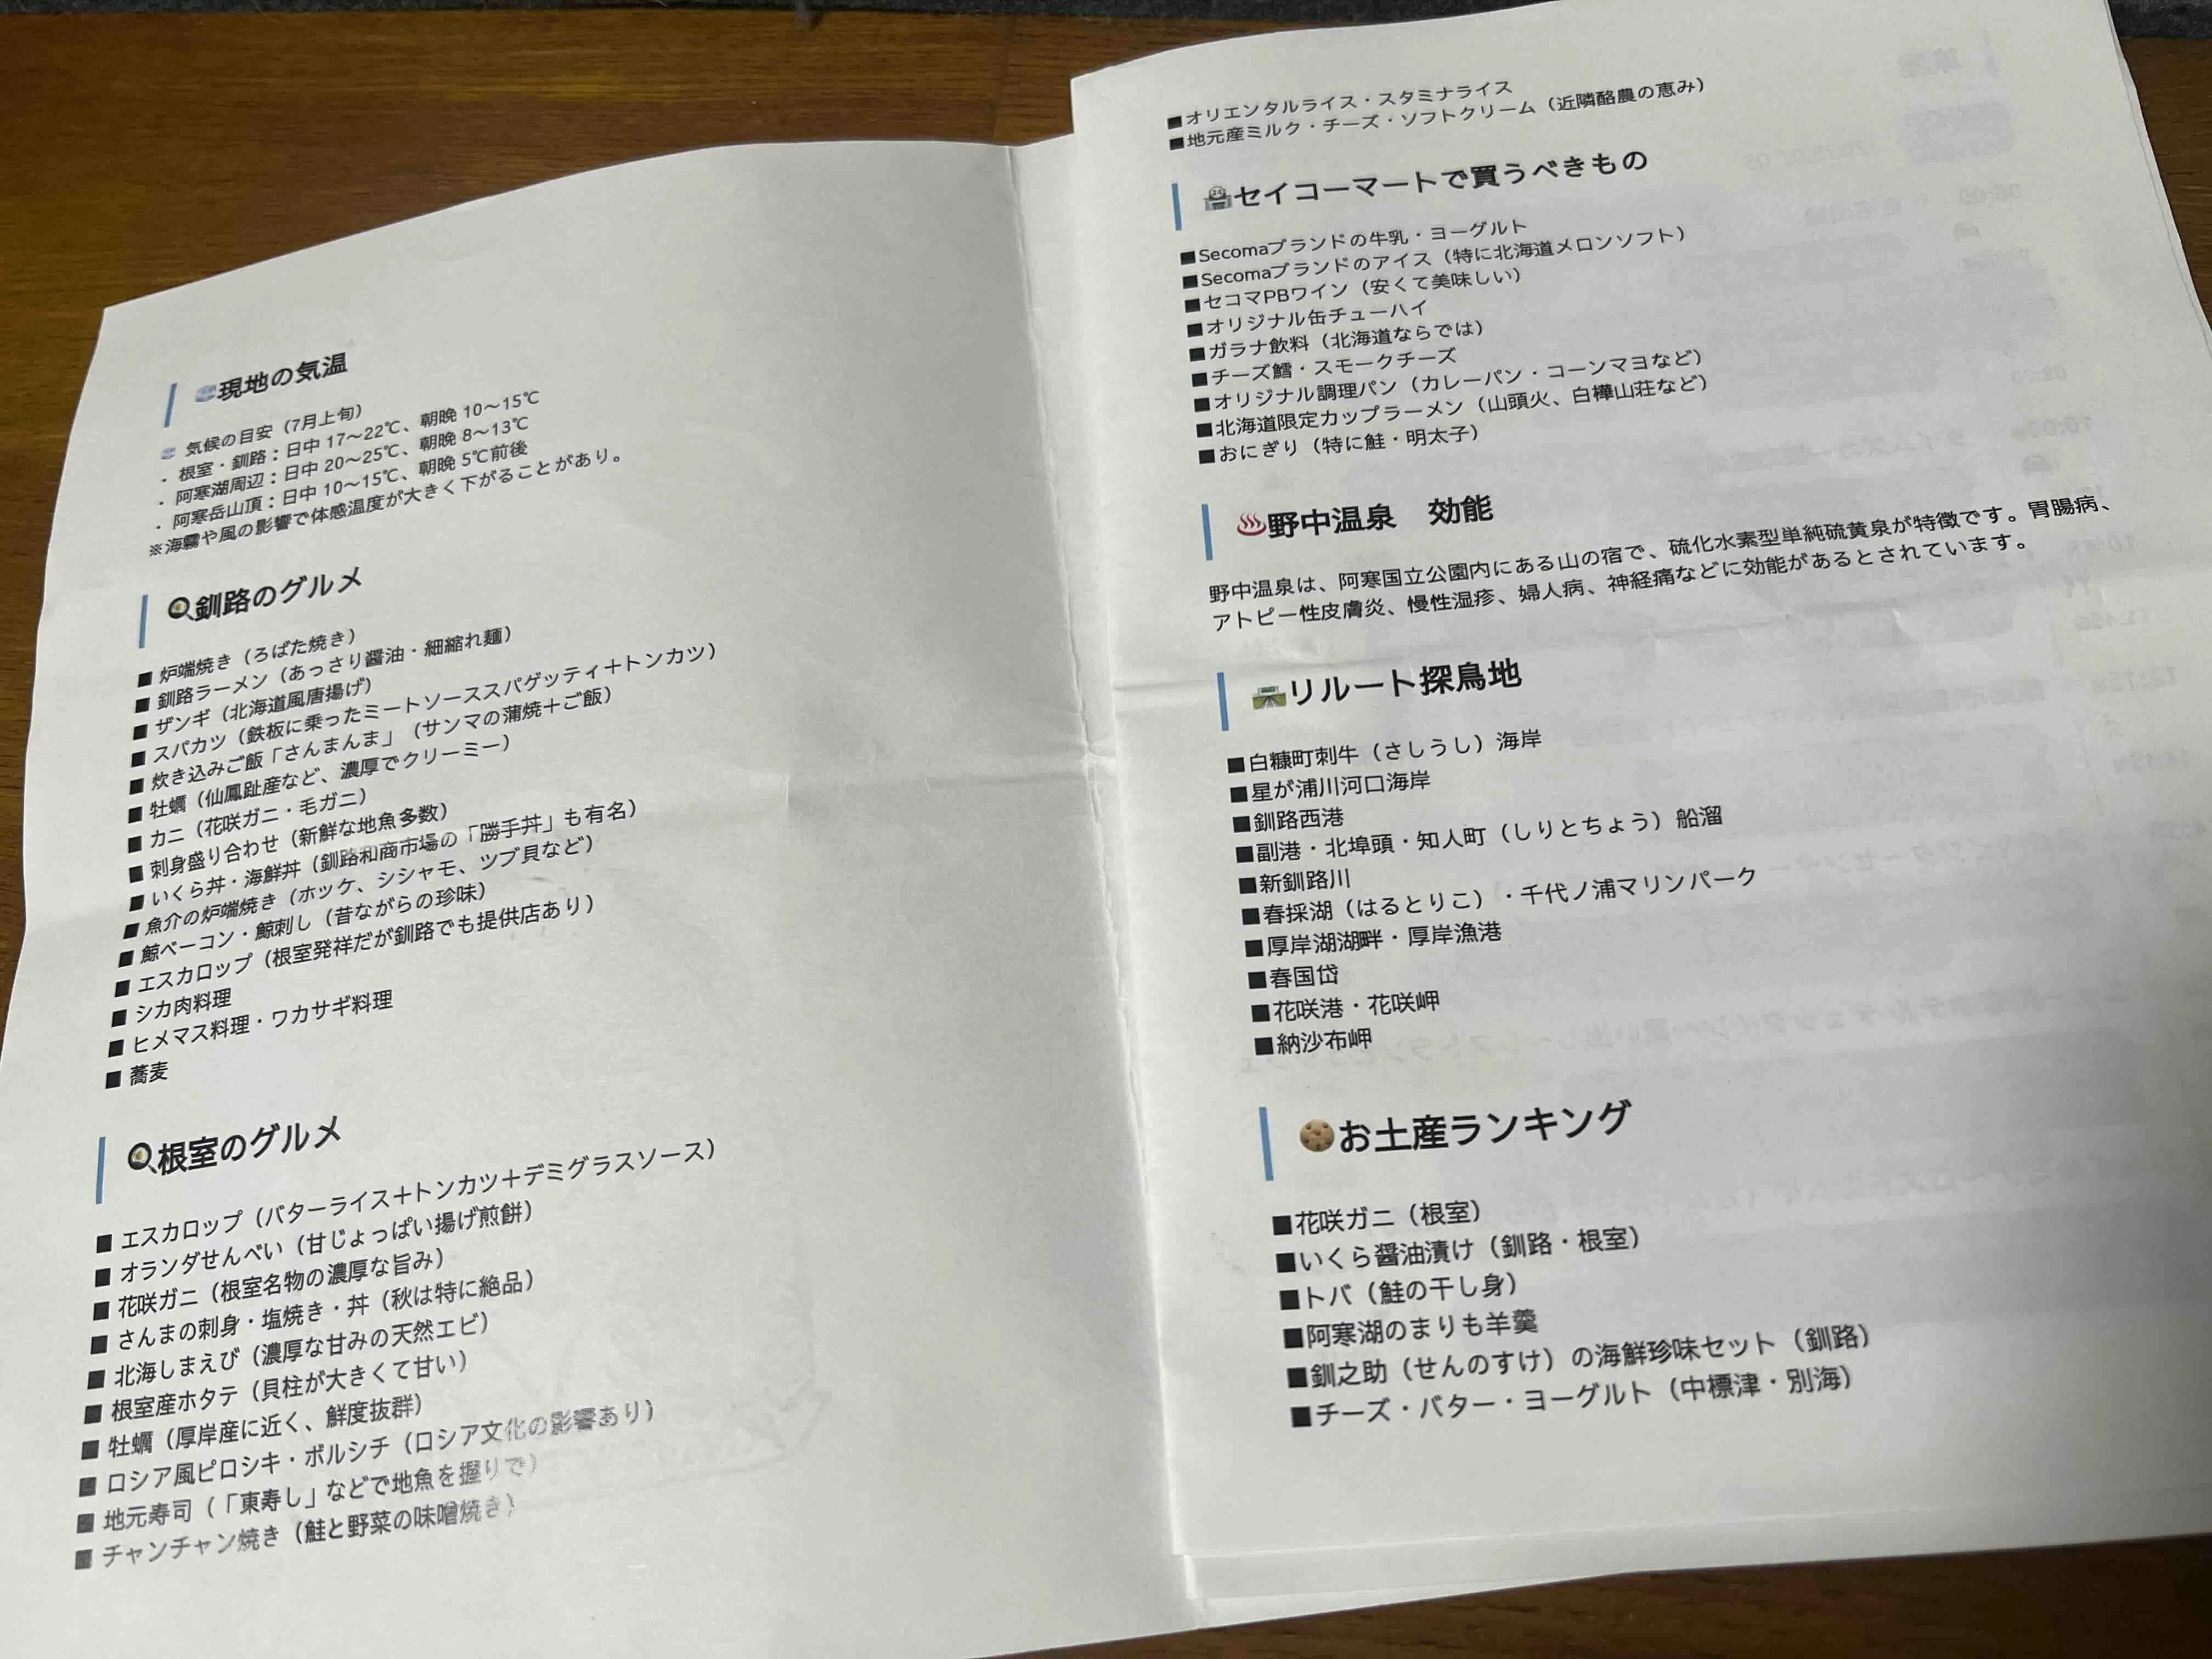 現地の気温
気候の目安（7月上旬）
・根室・釧路：日中 17～22℃、朝晩 10～15℃
・阿寒湖周辺：日中 20～25℃、朝晩 8～13℃
・阿寒岳山頂：日中 10～15℃、朝晩 5℃前後
※海霧や風の影響で体感温度が大きく下がることがあり。
釧路のグルメ
■ 炉端焼き（ろばた焼き）
■ 釧路ラーメン（あっさり醤油・細縮れ麺）
■ ザンギ（北海道風唐揚げ）
■ スパカツ（鉄板に乗ったミートソーススパゲッティ＋トンカツ）
■ 炊き込みご飯「さんまんま」（サンマの蒲焼＋ご飯）
■ 牡蠣（仙鳳趾産など、濃厚でクリーミー）
■ カニ（花咲ガニ・毛ガニ）
■ 刺身盛り合わせ（新鮮な地魚多数）
■ いくら丼・海鮮丼（釧路和商市場の「勝手丼」も有名）
■ 魚介の炉端焼き（ホッケ、シシャモ、ツブ貝など）
■ 鯨ベーコン・鯨刺し（昔ながらの珍味）
■ エスカロップ（根室発祥だが釧路でも提供店あり）
■ シカ肉料理
■ ヒメマス料理・ワカサギ料理
■ 蕎麦
根室のグルメ
■ エスカロップ（バターライス＋トンカツ＋デミグラスソース）
■ オランダせんべい（甘じょっぱい揚げ煎餅）
■ 花咲ガニ（根室名物の濃厚な旨み）
■ さんまの刺身・塩焼き・丼（秋は特に絶品）
■ 北海しまえび（濃厚な甘みの天然エビ）
■ 根室産ホタテ（貝柱が大きくて甘い）
■ 牡蠣（厚岸産に近く、鮮度抜群）
■ ロシア風ピロシキ・ボルシチ（ロシア文化の影響あり）
■ 地元寿司（「東寿し」などで地魚を握りで）
■ チャンチャン焼き（鮭と野菜の味噌焼き）
■オリエンタルライス・スタミナライス
■地元産ミルク・チーズ・ソフトクリーム（近隣酪農の恵み）
セイコーマートで買うべきもの
■Secomaブランドの牛乳・ヨーグルト
■Secomaブランドのアイス（特に北海道メロンソフト）
■セコマPBワイン（安くて美味しい）
■オリジナル缶チューハイ
■ガラナ飲料（北海道ならでは）
■チーズ鱈・スモークチーズ
■オリジナル調理パン（カレーパン・コーンマヨなど）
■北海道限定カップラーメン（山頭火、白樺山荘など）
■おにぎり（特に鮭・明太子）
野中温泉　効能
野中温泉は、阿寒国立公園内にある山の宿で、硫化水素型単純硫黄泉が特徴です。胃腸病、
アトピー性皮膚炎、慢性湿疹、婦人病、神経痛などに効能があるとされています。
リルート探鳥地
■白糠町刺牛（さしうし）海岸
■星が浦川河口海岸
■釧路西港
■副港・北埠頭・知人町（しりとちょう）船溜
■新釧路川
■春採湖（はるとりこ）・千代ノ浦マリンパーク
■厚岸湖湖畔・厚岸漁港
■春国岱
■花咲港・花咲岬
■納沙布岬
お土産ランキング
■花咲ガニ（根室）
■いくら醤油漬け（釧路・根室）
■トバ（鮭の干し身）
■阿寒湖のまりも羊羹
■釧之助（せんのすけ）の海鮮珍味セット（釧路）
■チーズ・バター・ヨーグルト（中標津・別海）